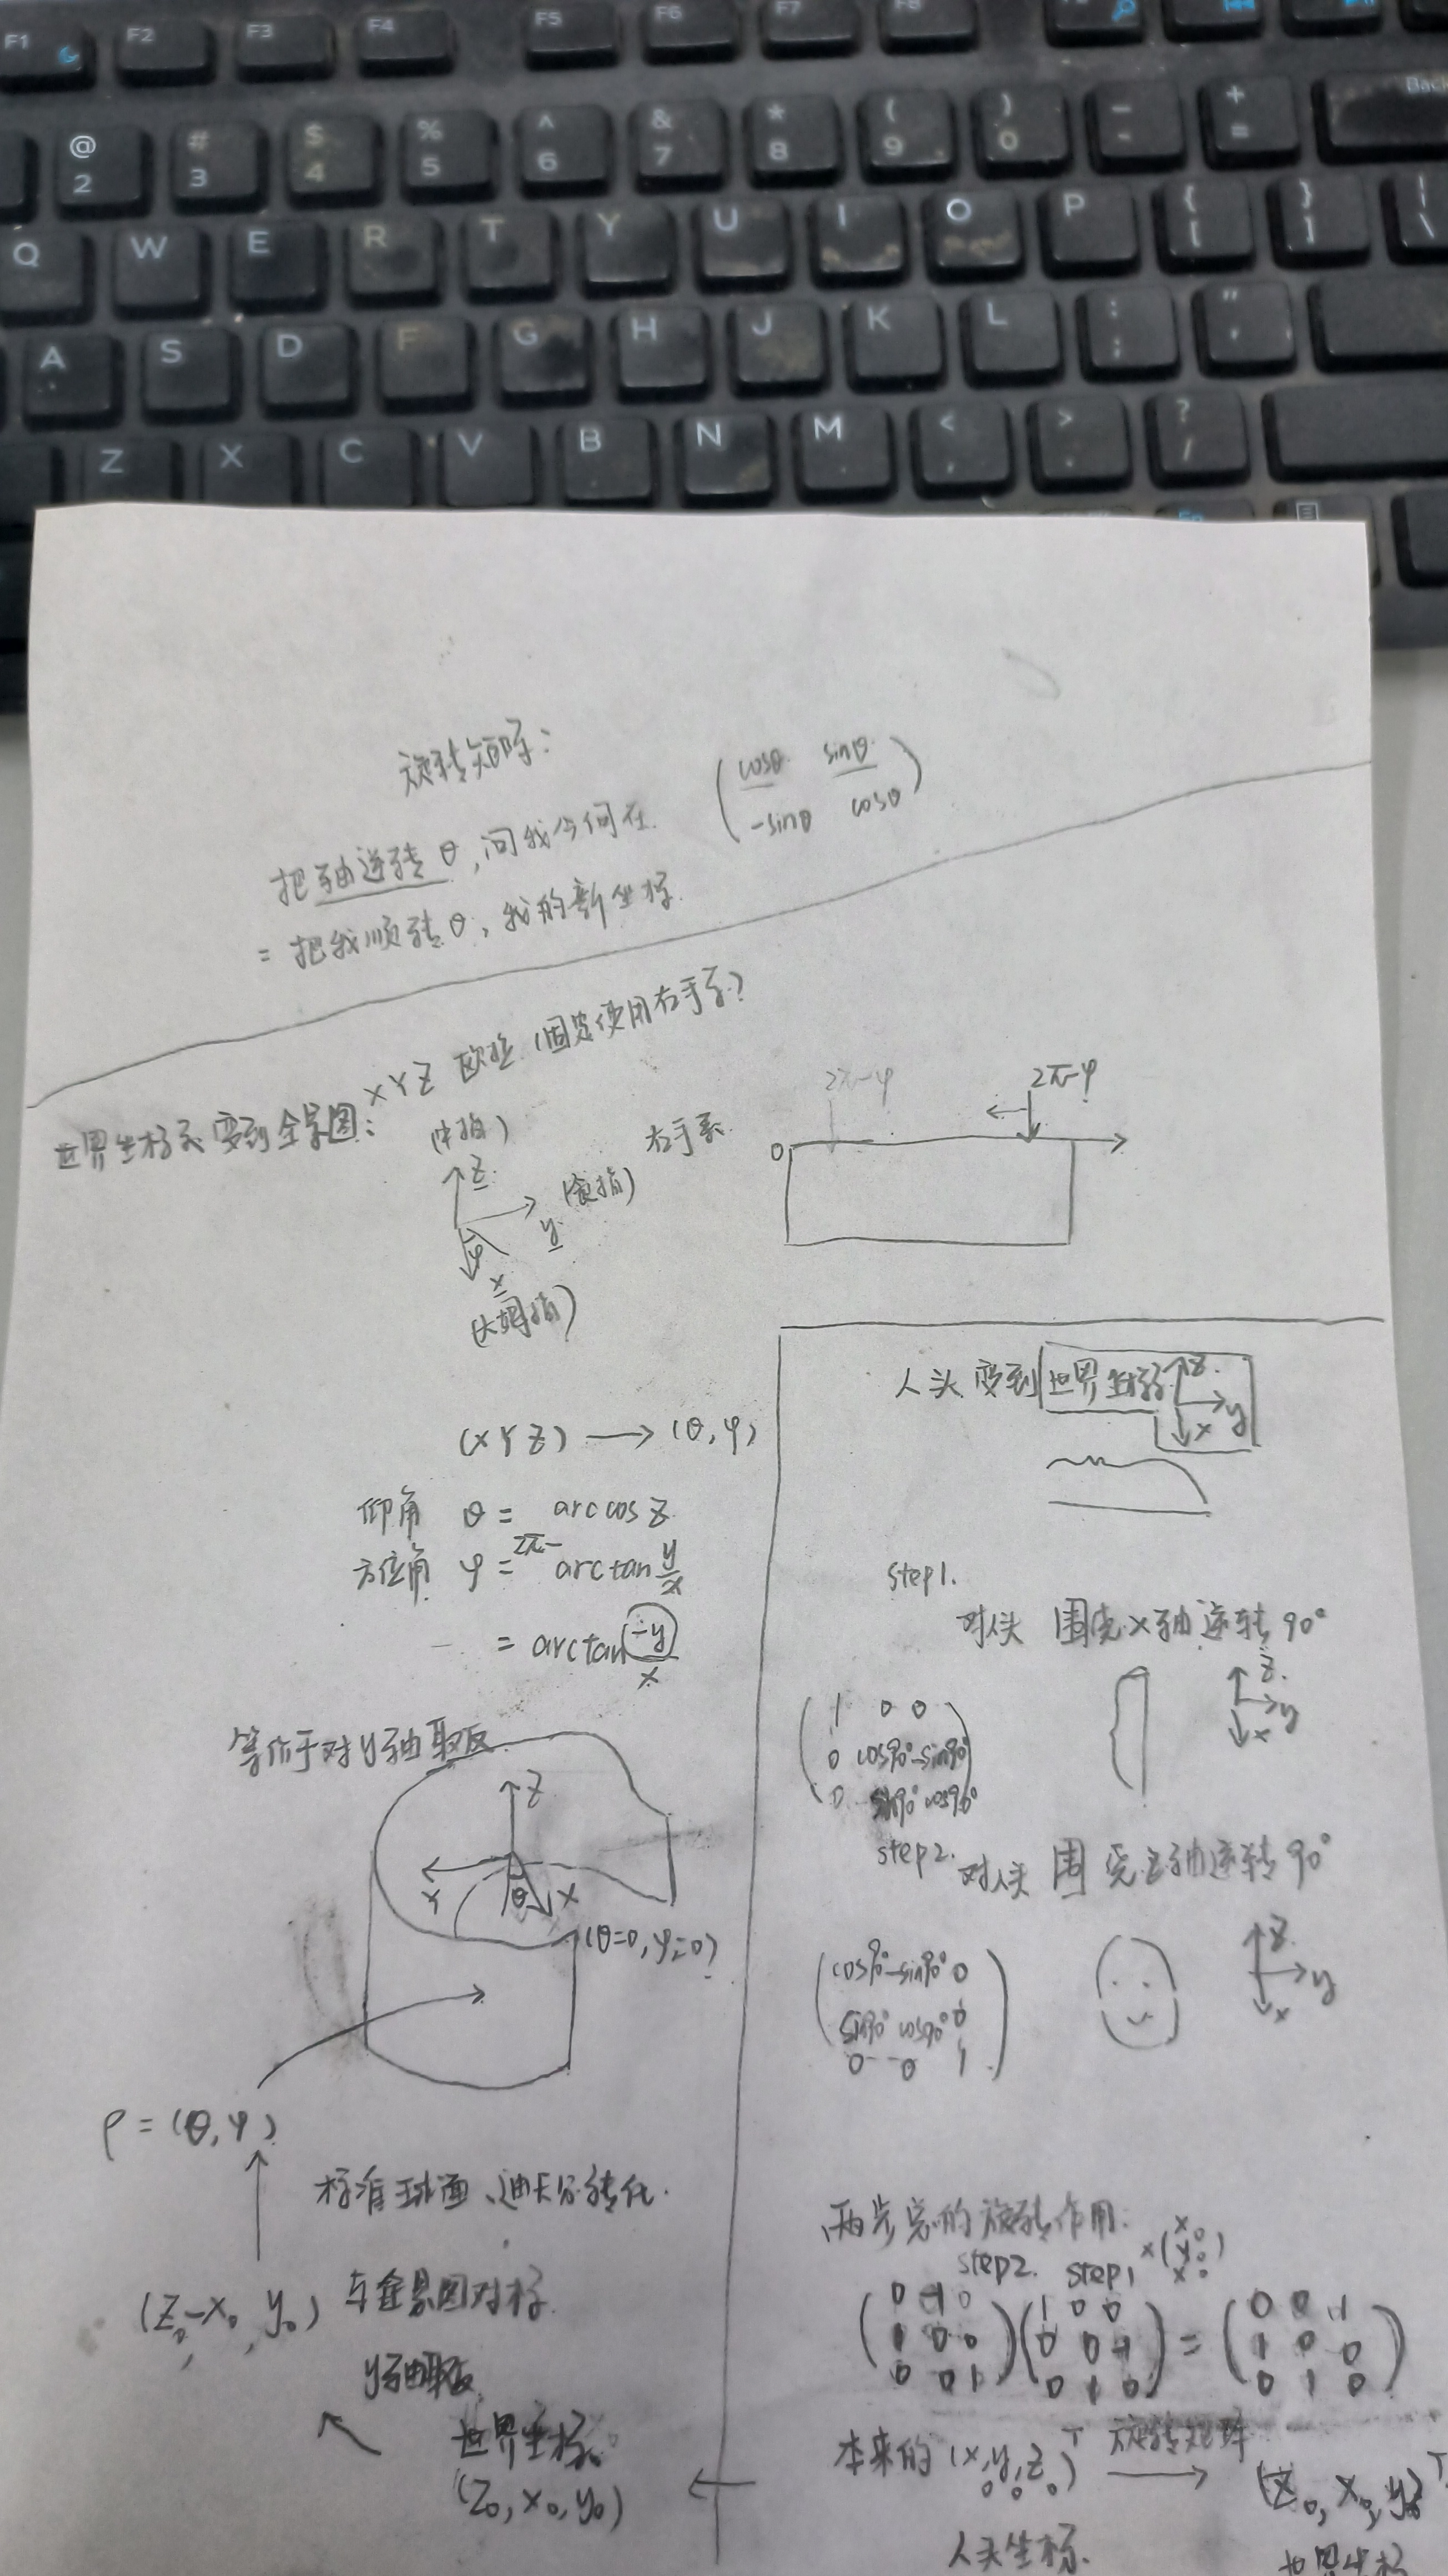 F1 F2 F3 F4 F5 F6 F7 F8
@ 2 # 3 $ 4 % 5 ^ 6 & 7 * 8 ( 9 ) 0 - + = Back
Q W E R T Y U I O P { [ } ] | \
A S D F G H J K L : ; " '
Z X C V B N M < , > . ? /
旋转矩阵:
把轴逆转θ,问我今何在.
= 把我顺转θ,我的新坐标.
cosθ sinθ
-sinθ cosθ
XYZ 欧拉 (固定使用右手系?)
世界坐标系变到全景图:
(中指)
z
(食指)
y
φ
x
(大姆指)
右手系.
2π-φ
2π-φ
0
(X Y Z) → (θ,φ)
仰角 θ = arccos z
方位角 φ = 2π- arctan y/x
= arctan -y/x
等价于对y轴取反
Z
Y
θ
X
(θ=0,φ=0)
ρ = (θ,φ)
标准球面、迪卡尔转化.
(Z₀,-X₀,y₀) 与全景图对标
y轴取反
世界坐标
(Z₀, x₀, y₀)
人头变到世界坐标
z
y
x
step1.
对人头 围绕x轴逆转90°
1 0 0
0 cos90° -sin90°
0 sin90° cos90°
z
y
x
step2. 对人头 围绕z轴逆转90°
cos90° -sin90° 0
sin90° cos90° 0
0 0 1
z
y
x
两步总的旋转作用:
step2. step1
0 -1 0
1 0 0
0 0 1
1 0 0
0 0 -1
0 1 0
=
0 0 1
1 0 0
0 1 0
本来的 (x₀,y₀,z₀)ᵀ 旋转矩阵 → (z₀, x₀, y₀)ᵀ
人头坐标. 世界坐标